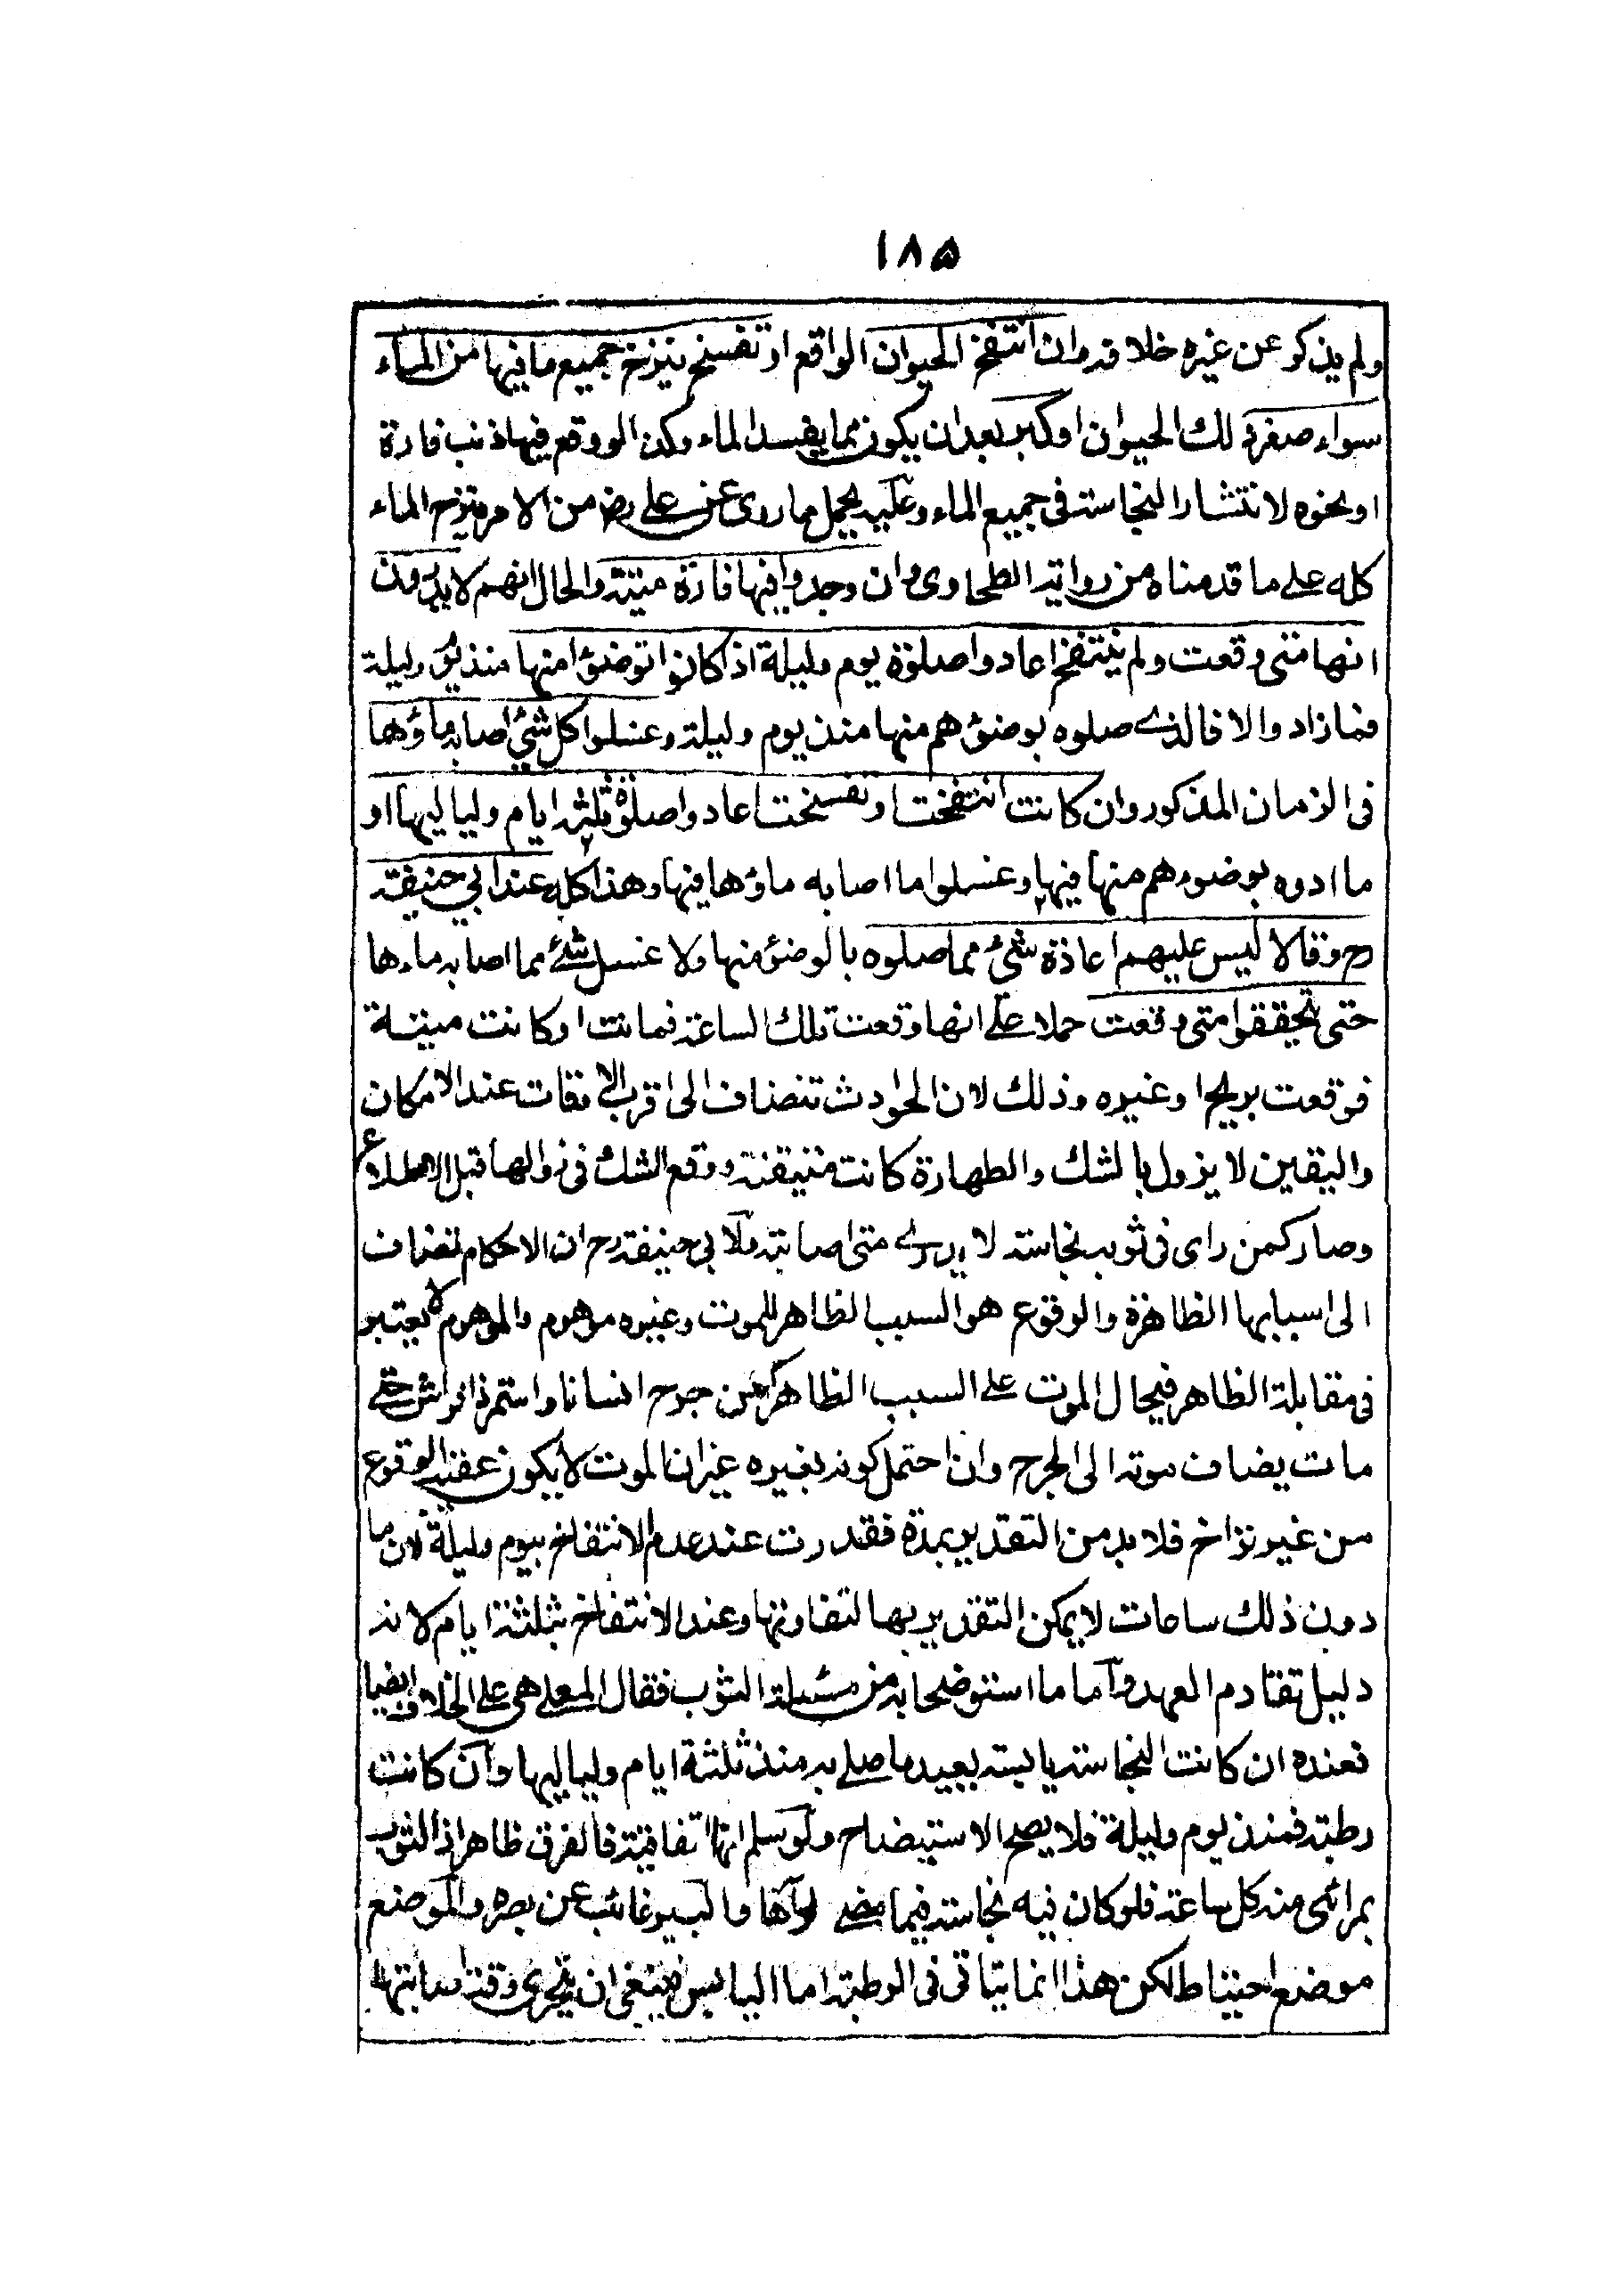 ١٨٥
ولم يذكر عن غيره خلافه وان انتفخ الحيوان الواقع او تفسخ ينزح جميع ما فيها من الماء
سواء صغر ذلك الحيوان او كبر بعد ان يكون مما يفسد الماء وكذا لو وقع فيها ذنب فارة
او نحوه لانتشار النجاسة فى جميع الماء وعليه يحمل ما روى عن على رض من الامر بنزح الماء
كله على ما قدمناه من رواية الطحاوى وان وجدوا فيها فارة ميتة والحال انهم لا يدرون
انها متى وقعت ولم ينتفخ اعادوا صلوة يوم وليلة اذا كانوا توضؤا منها منذ يوم وليلة
فما زاد والا فالذى صلوه بوضوئهم منها منذ يوم وليلة وغسلوا كل شئ اصابه ماؤها
فى الزمان المذكور وان كانت انتفخت او تفسخت اعادوا صلوة ثلثة ايام ولياليها او
ما ادوه بوضوءهم منها فيها وغسلوا ما اصابه ماؤها فيها وهذا كله عند ابي حنيفة
رح وقالا ليس عليهم اعادة شئ مما صلوه بالوضوء منها ولا غسل شئ مما اصابه ماءها
حتى يتحققوا متى وقعت حملا على انها وقعت تلك الساعة فماتت او كانت ميتة
فوقعت بريح او غيره وذلك لان الحوادث تنضاف الى اقرب الاوقات عند الامكان
واليقين لا يزول بالشك والطهارة كانت متيقنة ووقع الشك فى زوالها قبل الاطلاع
وصار كمن راى فى ثوبه نجاسة لا يدرى متى اصابته ولابى حنيفة رح ان الاحكام تضاف
الى اسبابها الظاهرة والوقوع هو السبب الظاهر للموت وغيره موهوم والموهوم لا يعتبر
فى مقابلة الظاهر فيحال الموت على السبب الظاهر كمن جرح انسانا واستمر ذا فراش حتى
مات يضاف موته الى الجرح وان احتمل كونه بغيره غير ان الموت لا يكون عقيب الوقوع
من غير تراخ فلا بد من التقدير بمدة فقدرت عند عدم الانتفاخ بيوم وليلة لان ما
دون ذلك ساعات لا يمكن التقدير بها لتفاوتها وعند الانتفاخ بثلثة ايام لانه
دليل تقادم العهد واما ما استوضحا به من مسئلة الثوب فقال المعلى هى على الخلاف ايضا
فعنده ان كانت النجاسة يابسة يعيد ما صلى به منذ ثلثة ايام ولياليها وان كانت
رطبة فمنذ يوم وليلة فلا يصح الاستيضاح ولو سلم انها اتفاقية فالفرق ظاهر اذ الثوب
بمرائى منه كل ساعة فلو كان فيه نجاسة فيما مضى لرآها والبير غائب عن بصره والموضع
موضع احتياط لكن هذا انما يتاتى فى الرطبة اما اليابس فينبغى ان يتحرى وقت اصابتها